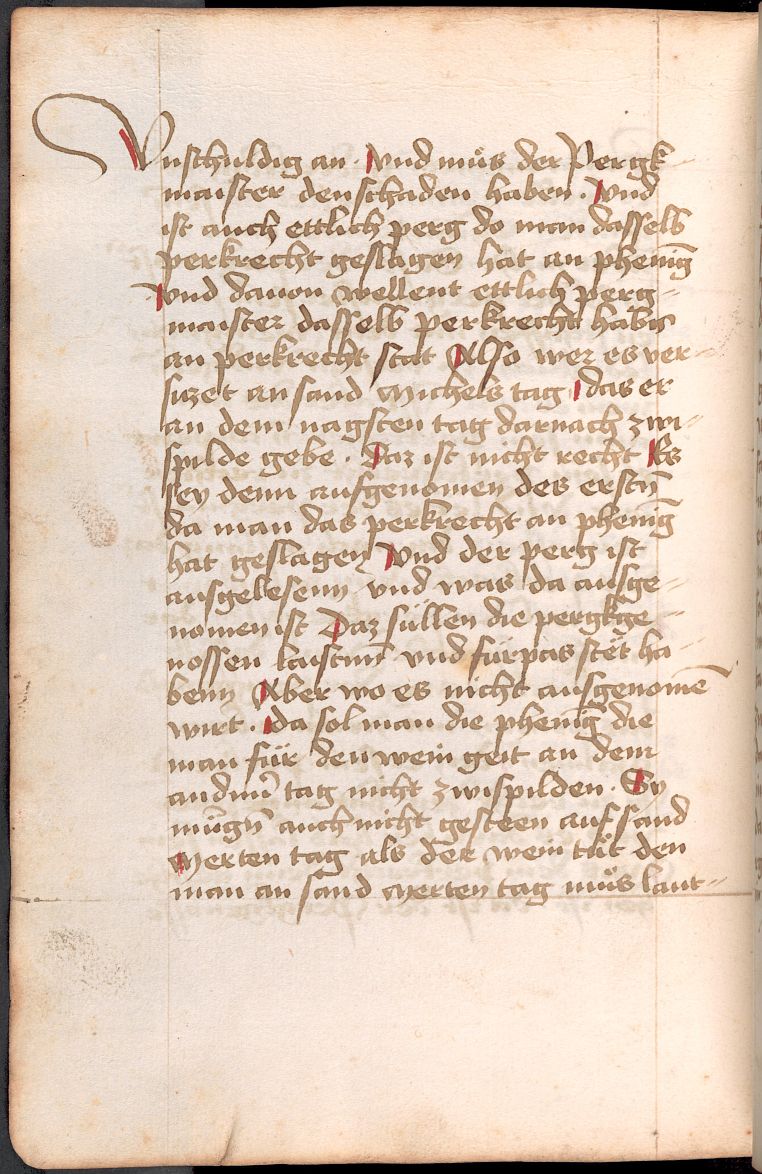 Vnschuldig an · vnd muͤs der Pergk
maister den schaden haben · vnd
ist auch ettlich perg do man dasselb
perkrecht geslagen hat an phenīg
vnd dauon wellent ettlich perg-
maister dasselb perkrecht habn̄
an perkrecht stat Also wer es ver-
siczet an sand Michels tag das er
an dem nagsten tag darnach zwi-
spilde gebe · Daz ist nicht recht Es
sey denn aufgenomen des erstn̄
da man das perkrecht an phenīg
hat geslagen vnd der perg ist
ausgelesenn vnd was da ausge-
nomen ist Daz süllen die pergkge-
nossen laistnn̄ vnd fürpas stët ha-
benn Aber wo es nicht ausgenomē
wirt · da sol man die phenīg die
man für den wein geit an dem
andnn̄ tag nicht zwispilden · Sy
mügn̄ auch nicht gesteen auf sand
Merten tag als der wein tuͤt den
man an sand Merten tag muͤs laut-